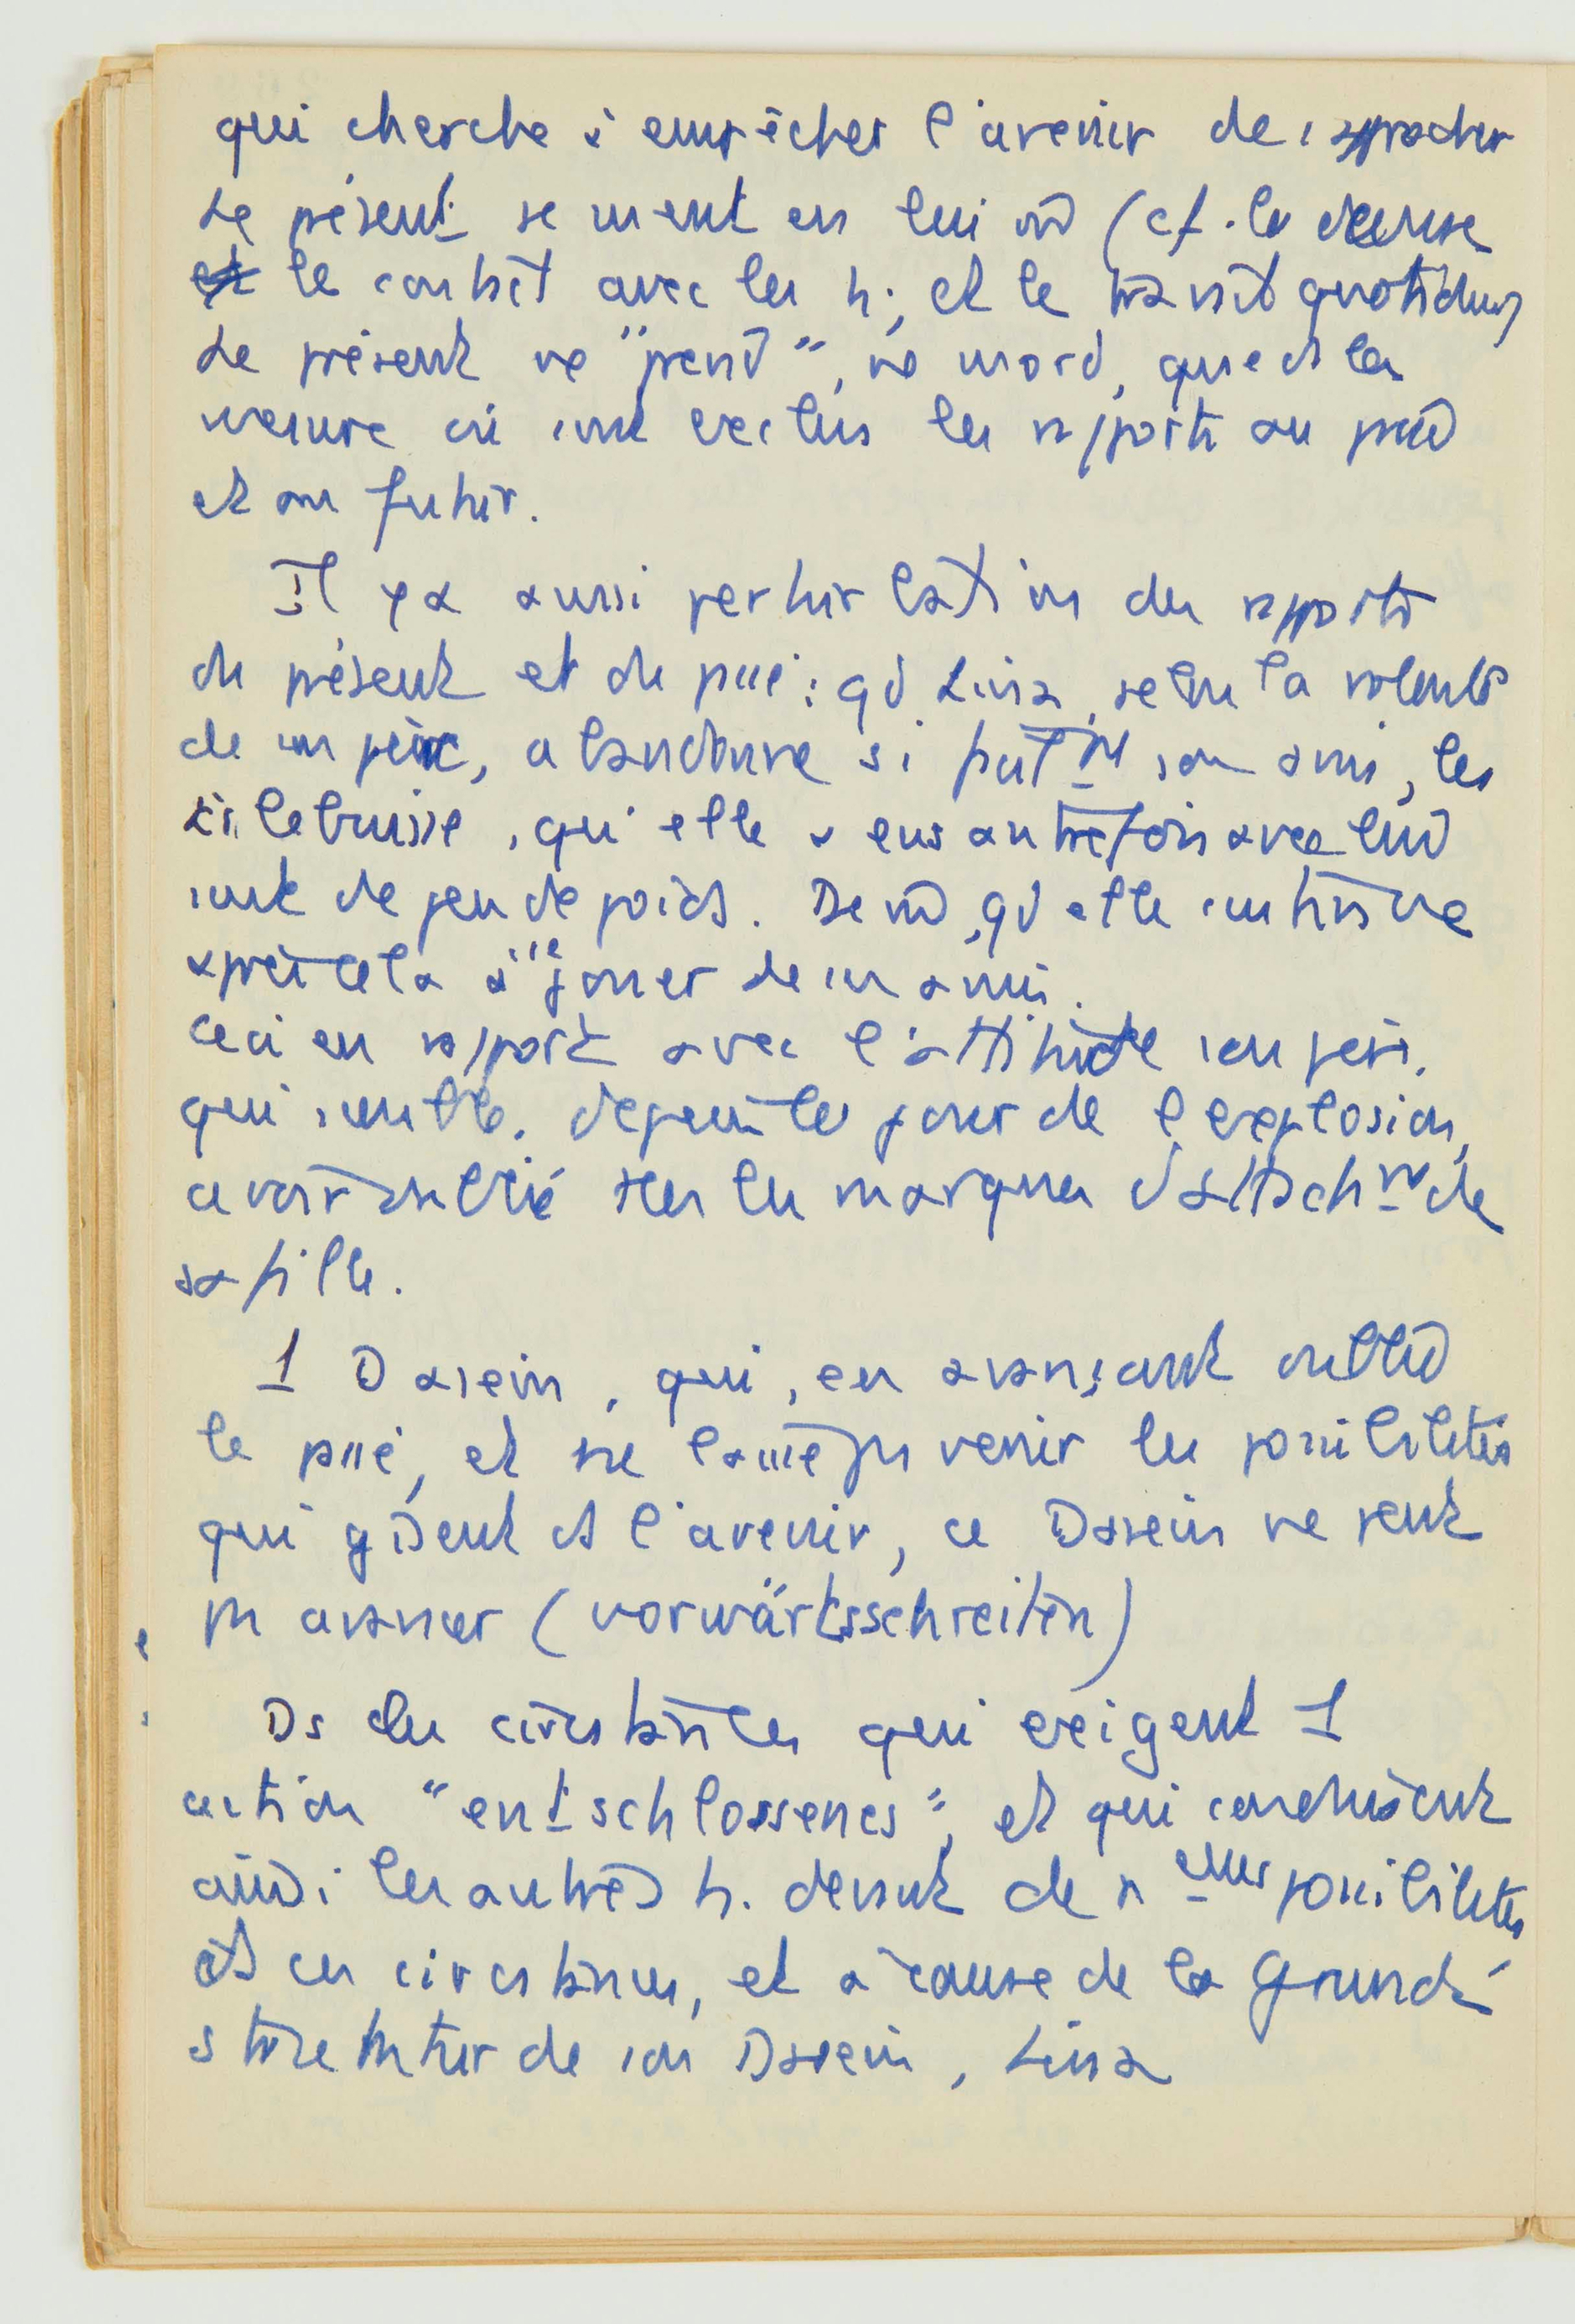 qui cherche à empêcher l'avenir de s'approcher
Le présent se meut en lui m̄ (cf. la danse
et le contact avec les h., et le travail quotidien)
Le présent ne "prend", ne mord, que ds la
mesure où sont exclus les rapports au passé
et au futur.
Il y a aussi perturbation des rapports
du présent et du passé : qd Lina, selon la volonté
de son père, abandonne si fact^nt son ami, les
qu'elle a eus autrefois avec lui
sont de peu de poids. De m̄, qd elle continue
après cela à "jouer" de son ami.
Ceci en rapport avec l'attitude son père,
qui semble, depuis le jour de l'explosion,
avoir oublié ttes les marques d'attach^nt de
sa fille.
1 Dasein, qui, en avançant oublie
le passé, et ne laisse pas venir les possibilités
qui gisent ds l'avenir, ce Dasein ne peut
pas avancer (vorwärtsschreiten)
Ds des circstances qui exigent 1
action "entschlossenes", et qui conduisent
ainsi les autres h. devant de n^elles possibilités
ds ces circstances, et à cause de la Grund-
struktur de son Dasein, Lina